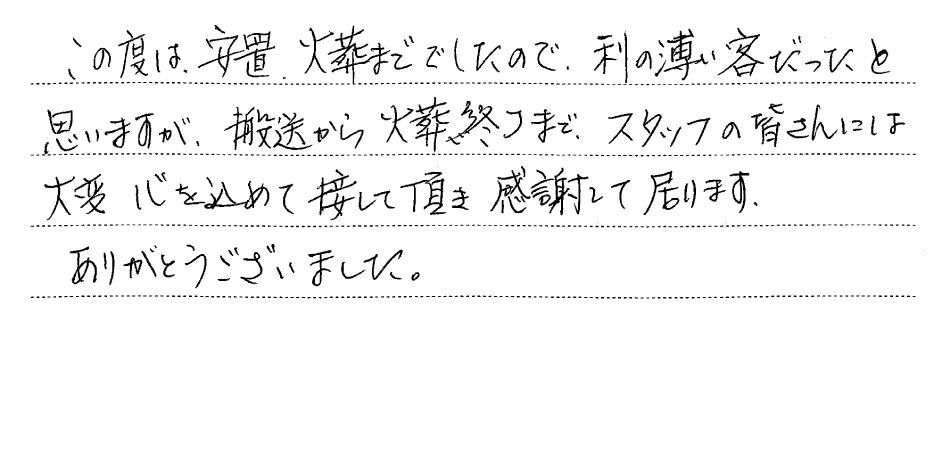 この度は、安置、火葬まででしたので、利の薄い客だったと
思いますが、搬送から火葬終了まで、スタッフの皆さんには
大変心を込めて接して頂き感謝して居ります。
ありがとうございました。